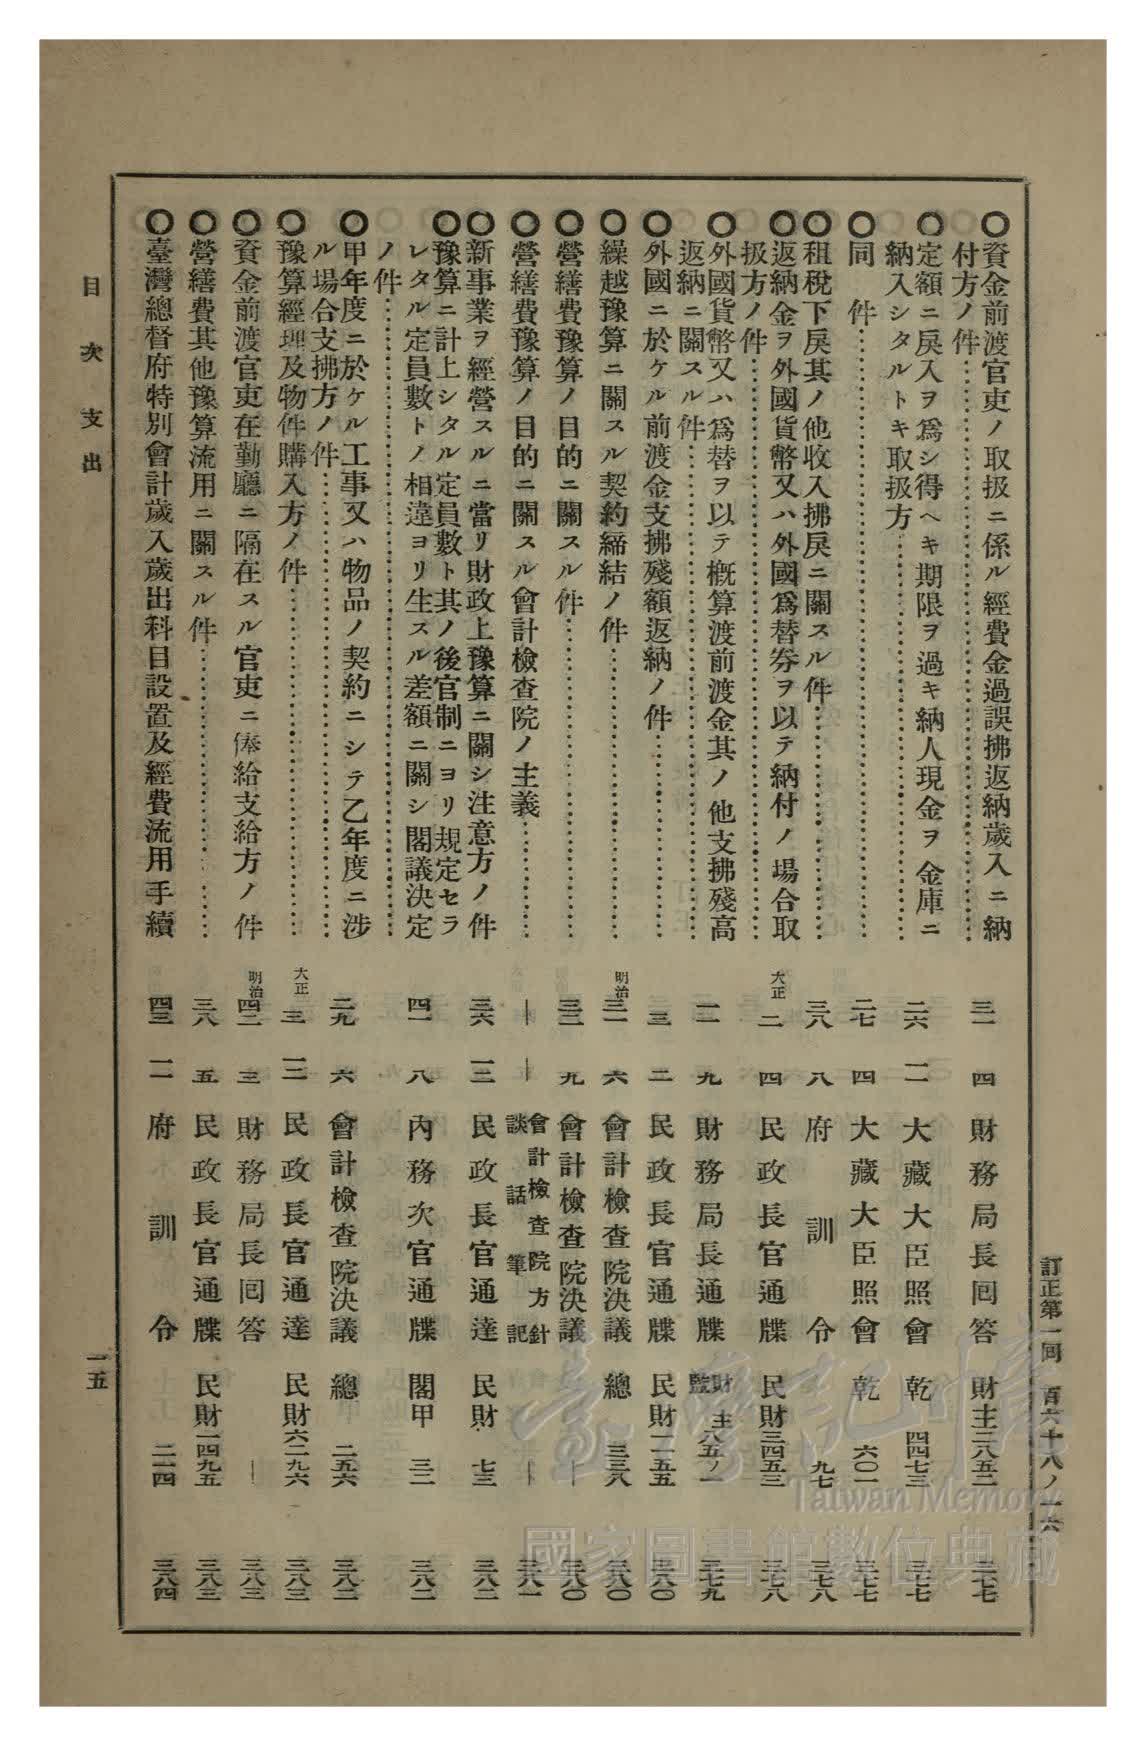 訂正第一回 百六十八ノ一六
◯資金前渡官吏ノ取扱ニ係ル經費金過誤拂返納歲入ニ納
付方ノ件 三一 四 財務局長回答 財主三八五二 三七七
◯定額ニ戾入ヲ爲シ得ヘキ期限ヲ過キ納人現金ヲ金庫ニ
納入シタルトキ取扱方 二六 一一 大藏大臣照會 乾 四四七三 三七七
◯同 件 二七 四 大藏大臣照會 乾 六〇一 三七七
◯租稅下戾其ノ他收入拂戾ニ關スル件 三八 八 府訓令 九七 三七八
◯返納金ヲ外國貨幣又ハ外國爲替券ヲ以テ納付ノ場合取
扱方ノ件 大正 二 四 民政長官通牒 民財三四五三 三七八
◯外國貨幣又ハ爲替ヲ以テ概算渡前渡金其ノ他支拂殘高
返納ニ關スル件 一一 九 財務局長通牒 財主監八五ノ一 三七九
◯外國ニ於ケル前渡金支拂殘額返納ノ件 三 二 民政長官通牒 民財一一五五 三八〇
◯繰越豫算ニ關スル契約締結ノ件 明治 三一 六 會計檢查院決議 總 三三八 三八〇
◯營繕費豫算ノ目的ニ關スル件 三三 九 會計檢查院決議 ― 三八〇
◯營繕費豫算ノ目的ニ關スル會計檢查院ノ主義 ― ― 會計檢查院方針談話筆記 ― 三八一
◯新事業ヲ經營スルニ當リ財政上豫算ニ關シ注意方ノ件 三六 一二 民政長官通達 民財 七三 三八二
◯豫算ニ計上シタル定員數ト其ノ後官制ニヨリ規定セラ
レタル定員數トノ相違ヨリ生スル差額ニ關シ閣議決定
ノ件 四一 八 內務次官通牒 閣甲 三二 三八二
◯甲年度ニ於ケル工事又ハ物品ノ契約ニシテ乙年度ニ涉
ル場合支拂方ノ件 二九 六 會計檢查院決議 總 二五六 三八二
◯豫算經理及物件購入方ノ件 大正 三 一二 民政長官通達 民財六二九六 三八三
◯資金前渡官吏在勤廳ニ隔在スル官吏ニ俸給支給方ノ件 明治 四二 三 財務局長回答 ― 三八三
◯營繕費其他豫算流用ニ關スル件 三八 五 民政長官通牒 民財一四九五 三八三
◯臺灣總督府特別會計歲入歲出科目設置及經費流用手續 四三 一一 府訓令 二一四 三八四
目次 支出 一五
臺灣記憶
Taiwan Memory
國家圖書館數位典藏